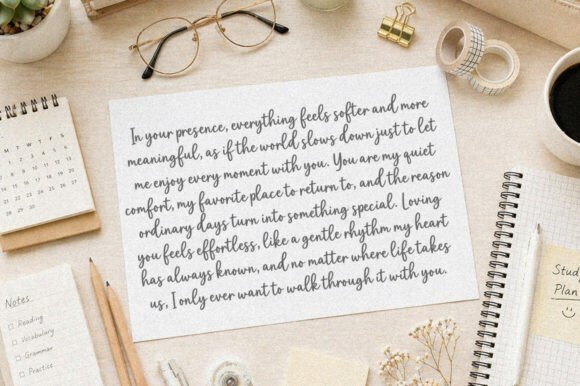 In your presence, everything feels softer and more
meaningful, as if the world slows down just to let
me enjoy every moment with you. You are my quiet
comfort, my favorite place to return to, and the reason
ordinary days turn into something special. Loving
you feels effortless, like a gentle rhythm my heart
has always known, and no matter where life takes
us, I only ever want to walk through it with you.
Notes
Reading
Vocabulary
Grammar
Practice
Study
Plan